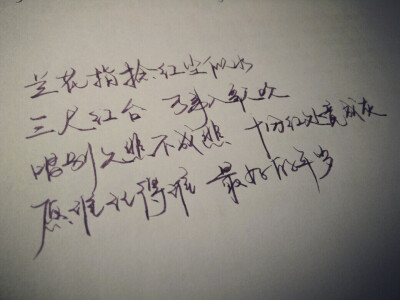 兰花指捻红尘似水
三尺红台 万事入歌吹
唱别久悲不成悲 十分红处竟成灰
愿谁记得谁 最好的年岁